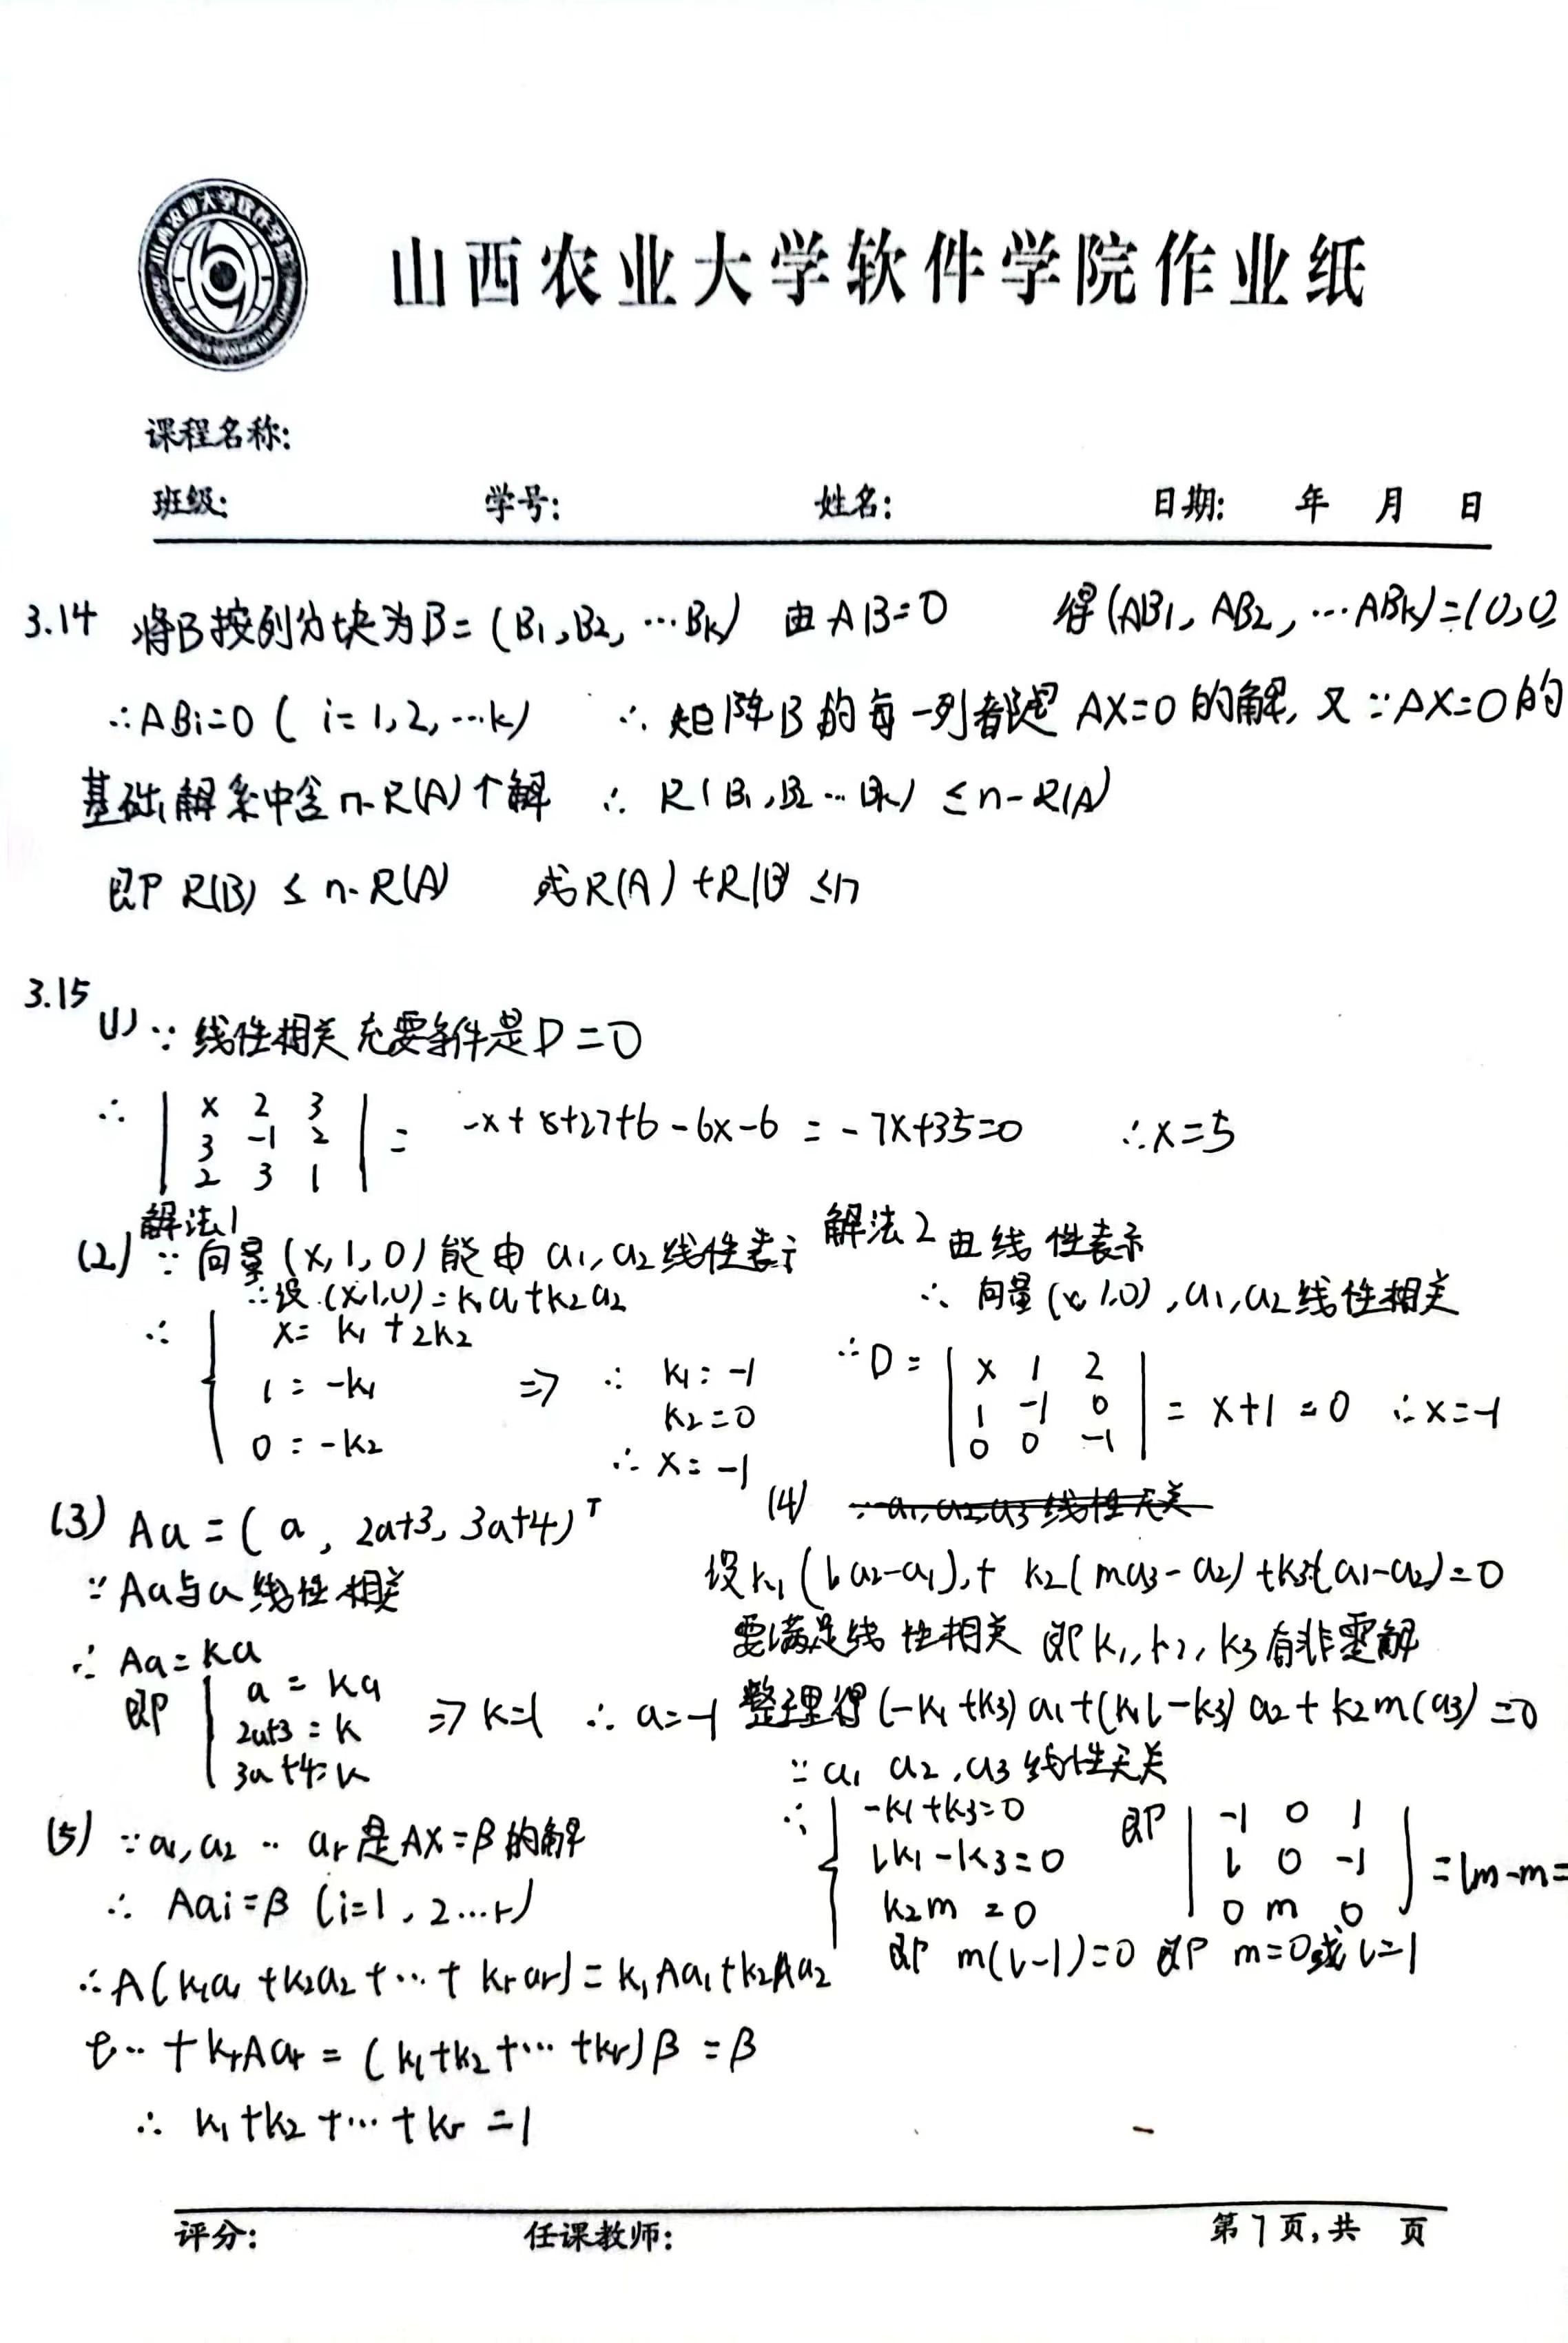 山西农业大学软件学院作业纸
课程名称:
班级: 学号: 姓名: 日期: 年 月 日
3.14 将B按列分块为B=(B1,B2,…Bk) 由AB=0 得(AB1, AB2, …ABk)=(0,0,
∴ABi=0 ( i=1,2,…k) ∴ 矩阵B的每一列都是 AX=0 的解, 又∵AX=0的
基础解系中含 n-R(A)个解 ∴ R(B1,B2…Bk) ≤n-R(A)
即 R(B) ≤ n-R(A) 或R(A)+R(B) ≤n
3.15
(1) ∵ 线性相关充要条件是D=0
∴ | x 2 3 |
| 3 -1 2 | = -x+8+27+6-6x-6 = -7x+35=0 ∴x=5
| 2 3 1 |
解法1
(2) ∵ 向量(x,1,0)能由 a1,a2线性表示
∴设(x,1,0)=k1a1+k2a2
∴ { x= k1+2k2
1 = -k1
0 = -k2
⇒ ∴ k1= -1
k2=0
∴ x= -1
解法2 由线性表示
∴ 向量(x,1,0),a1,a2线性相关
∴D= | x 1 2 |
| 1 -1 0 | = x+1=0 ∴x=-1
| 0 0 -1 |
(3) Aa=(a, 2a+3, 3a+4)ᵀ
∵ Aa与a线性相关
∴ Aa=ka
即 { a = ka
2a+3 = k
3a+4=k
⇒ k=1 ∴ a=-1
(4) ∵a1,a2,a3线性无关
设k1(la2-a1)+ k2(ma3-a2)+k3(a1-a2)=0
要满足线性相关 即k1,k2,k3有非零解
整理得(-k1+k3)a1+(k1l-k3)a2+k2m(a3)=0
∵ a1 a2,a3线性无关
∴ { -k1+k3=0
lk1-k3=0
k2m =0
即 | -1 0 1 |
| l 0 -1 | =lm-m=
| 0 m 0 |
即 m(l-1)=0 即 m=0或l=1
(5) ∵a1,a2 … ar是AX=β的解
∴ Aai=β (i=1,2…r)
∴A(k1a1+k2a2+…+krar)=k1Aa1+k2Aa2
+…+krAar = (k1+k2+…+kr)β=β
∴ k1+k2+…+kr=1
评分: 任课教师: 第7页,共 页